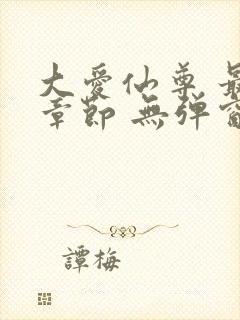 大爱仙尊 最
章節 無弹窗
譚梅